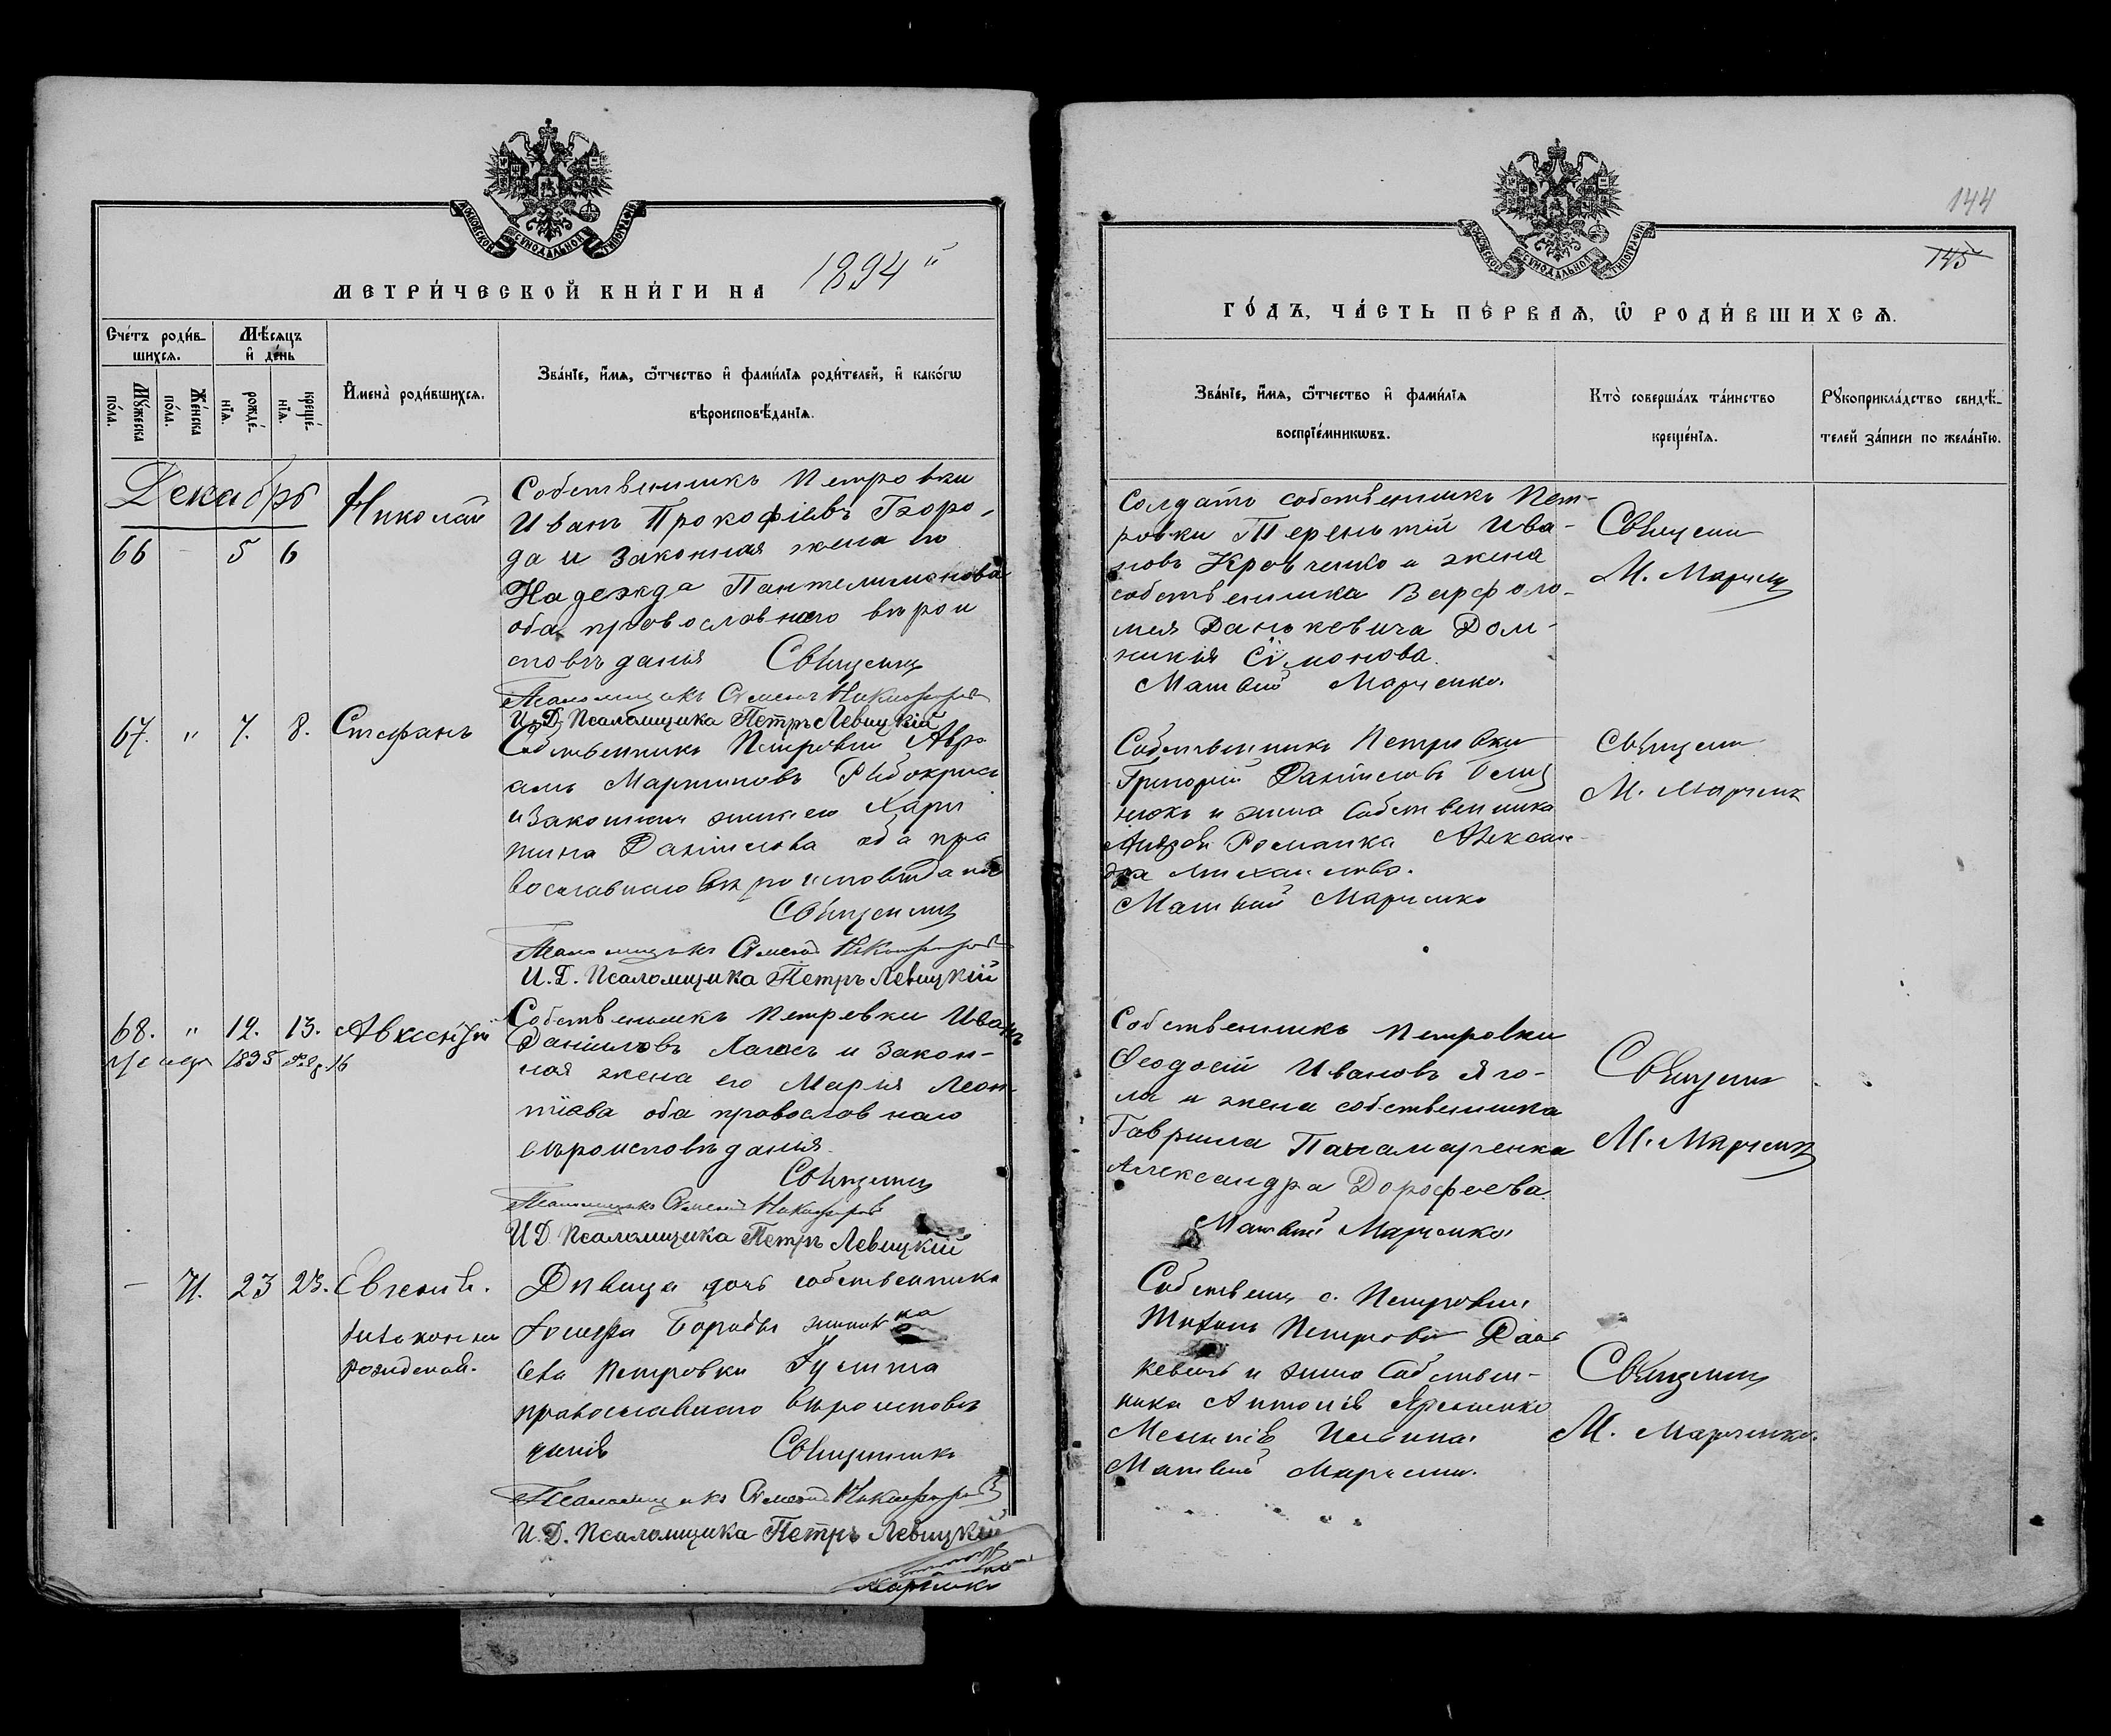 МОСКОВСКОЙ СѴНОДАЛЬНОЙ ТИПОГРАФІИ
МЕТРИ́ЧЕСКОЙ КНИ́ГИ НА 1894
Сче́тъ роди́в-
шихсѧ.
Мѣ́сѧцъ
и҆ де́нь
Мꙋ́жеска
по́ла.
Же́нска
по́ла.
рожде́-
нїѧ.
креще́-
нїѧ.
И҆мена̀ роди́вшихсѧ.
Зва́нїе, и҆́мѧ, ѻ҆́тчество и҆ фами́лїѧ роди́телей, и҆ како́гѡ
вѣроисповѣ́данїѧ.
Декабрь
66 - 5 6
Николай
Собственникъ Петровки
Иванъ Прокофіевъ
да и законная жена его
Надежда Пантелимонова
оба православного вѣрои
сповѣданія Священ
Псаломщикъ Симеонъ Никифоров
И. Д. Псаломщика Петръ Левицкій
67. " 7. 8. Стефанъ
Собственникъ Петровки Авра
амъ Мартиновъ
и законная жена его Хари
тина Даніилова оба пра
вославнаго вѣроисповѣданія
Священник
Псаломщикъ Симеонъ Никифоров
И. Д. Псаломщика Петръ Левицкій
68. " 12. 13. Авксентій
1895
16
Собственникъ Петровки Иванъ
Даніиловъ и закон-
ная жена его Марія Леон-
тіева оба православнаго
вѣроисповѣданія.
Священник
Псаломщикъ Симеонъ Никифоров
И Д Псаломщика Петръ Левицкій
- 71. 23 23. Евгенія.
незаконно
рожденая.
Дѣвица дочь собственника
Бороды
села Петровки
православнаго вѣроисповѣ
данія Священникъ
Псаломщикъ Симеонъ Никифоров
И. Д. Псаломщика Петръ Левицкій
Марченко
144
145
МОСКОВСКОЙ СѴНОДАЛЬНОЙ ТИПОГРАФІИ
ГО́ДЪ, ЧА́СТЬ ПЕ́РВАѦ, Ѡ҆ РОДИ́ВШИХСѦ.
Зва́нїе, и҆́мѧ, ѻ҆́тчество и҆ фами́лїѧ
воспрїе́мникѡвъ.
Кто̀ соверша́лъ та́инство
креще́нїѧ.
Рꙋкоприкла́дство свидѣ́-
телей за́писи по жела́нїю.
Солдатъ собственникъ Пет-
ровки Терентій Ива-
новъ Кравченко и жена
собственника Варфоло-
мея Данькевича Дом-
никія Симонова.
Матвій Марченко.
Священ
М. Марченк
Собственникъ Петровки
Григорій Даніиловъ
и жена собственника
Андрея Романка Алексан-
дра Михайлова.
Матвій Марченко
Священ
М. Марченк
Собственникъ Петровки
Феодосій Ивановъ Яго-
ла и жена собственника
Гавриила Панамаренка
Александра Дорофеева.
Матвій Марченко
Священник
М. Марченк
Собственник с. Петровки
Петровъ Дань
кевичъ и жена собствен-
ника Антонія Яременко
Матвій Марченко.
Священник
М. Марченко.